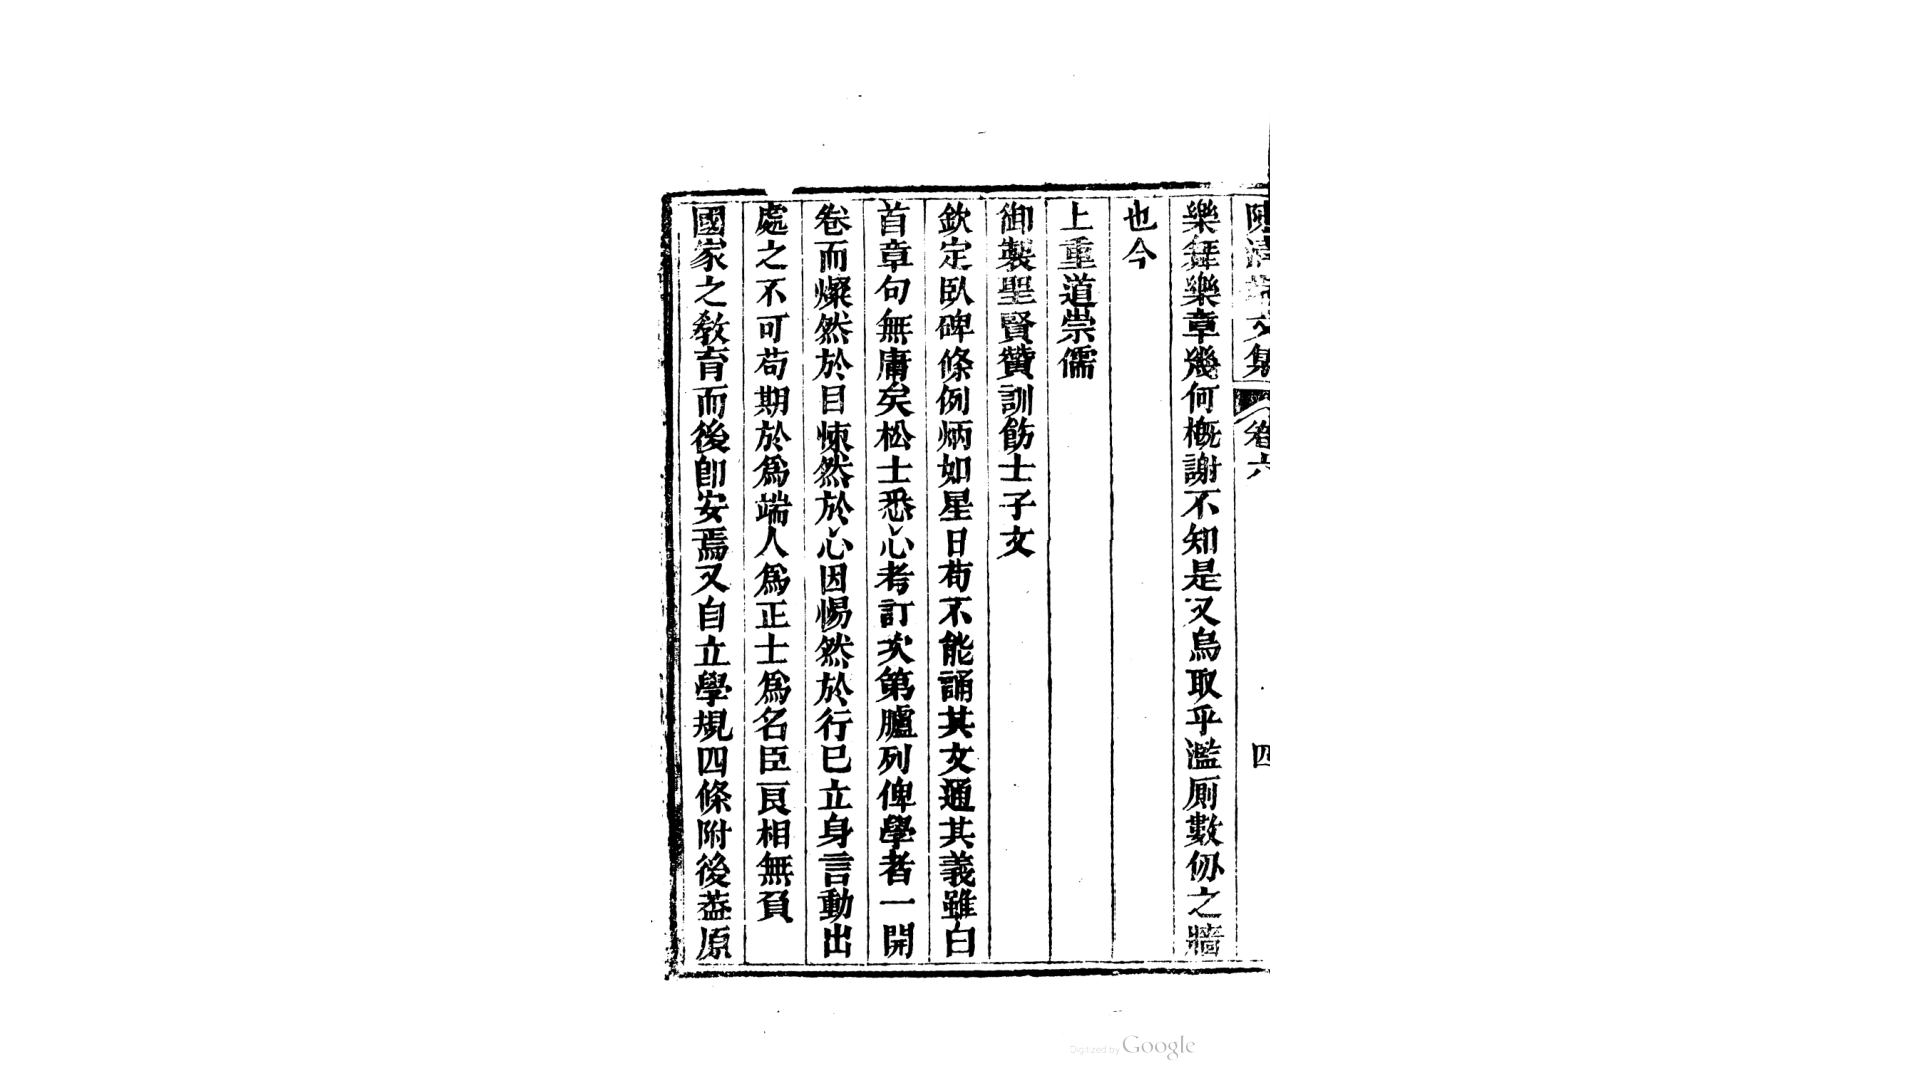 陳清端文集 卷六 四
樂舞樂章幾何槪謝不知是又烏取乎濫厠數仞之牆
也今
上重道崇儒
御製聖賢贊訓飭士子文
欽定臥碑條例炳如星日苟不能誦其文通其義雖白
首章句無庸矣松士悉心考訂次第臚列俾學者一開
卷而燦然於目悚然於心因惕然於行已立身言動出
處之不可苟期於爲端人爲正士爲名臣良相無負
國家之教育而後卽安焉又自立學規四條附後葢原
Digitized by Google